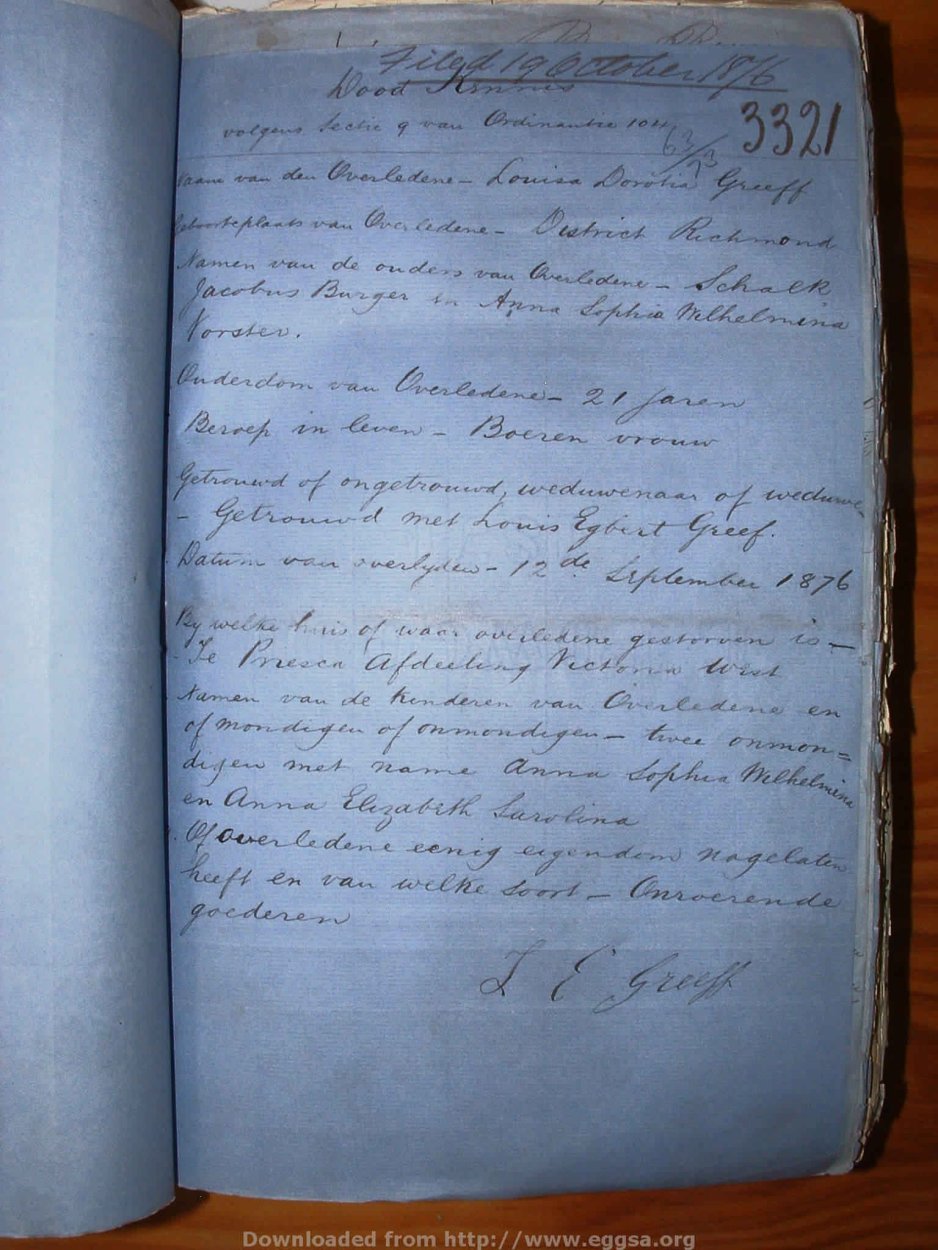 Filed 19 October 1876
Dood Kennis
3321
volgens Sectie 9 van Ordinantie 104
63/73
Naam van den Overledene – Louisa Dorotia Greeff
Geboorteplaats van Overledene – District Richmond
Namen van de ouders van Overledene – Schalk
Jacobus Burger en Anna Sophia Wilhelmina
Vorster.
Ouderdom van Overledene – 21 Jaren
Beroep in leven – Boeren vrouw
Getrouwd of ongetrouwd, weduwenaar of weduwe
– Getrouwd met Louis Egbert Greef.
Datum van overlyden – 12de September 1876
By welke huis of waar overledene gestorven is –
Te Priesca Afdeeling Victoria West
Namen van de kinderen van Overledene en
of mondigen of onmondigen – twee onmon=
digen met name Anna Sophia Wilhelmina
en Anna Elizabeth Carolina
Of overledene eenig eigendom nagelaten
heeft en van welke soort – Onroerende
goederen
L E Greeff
Downloaded from http://www.eggsa.org